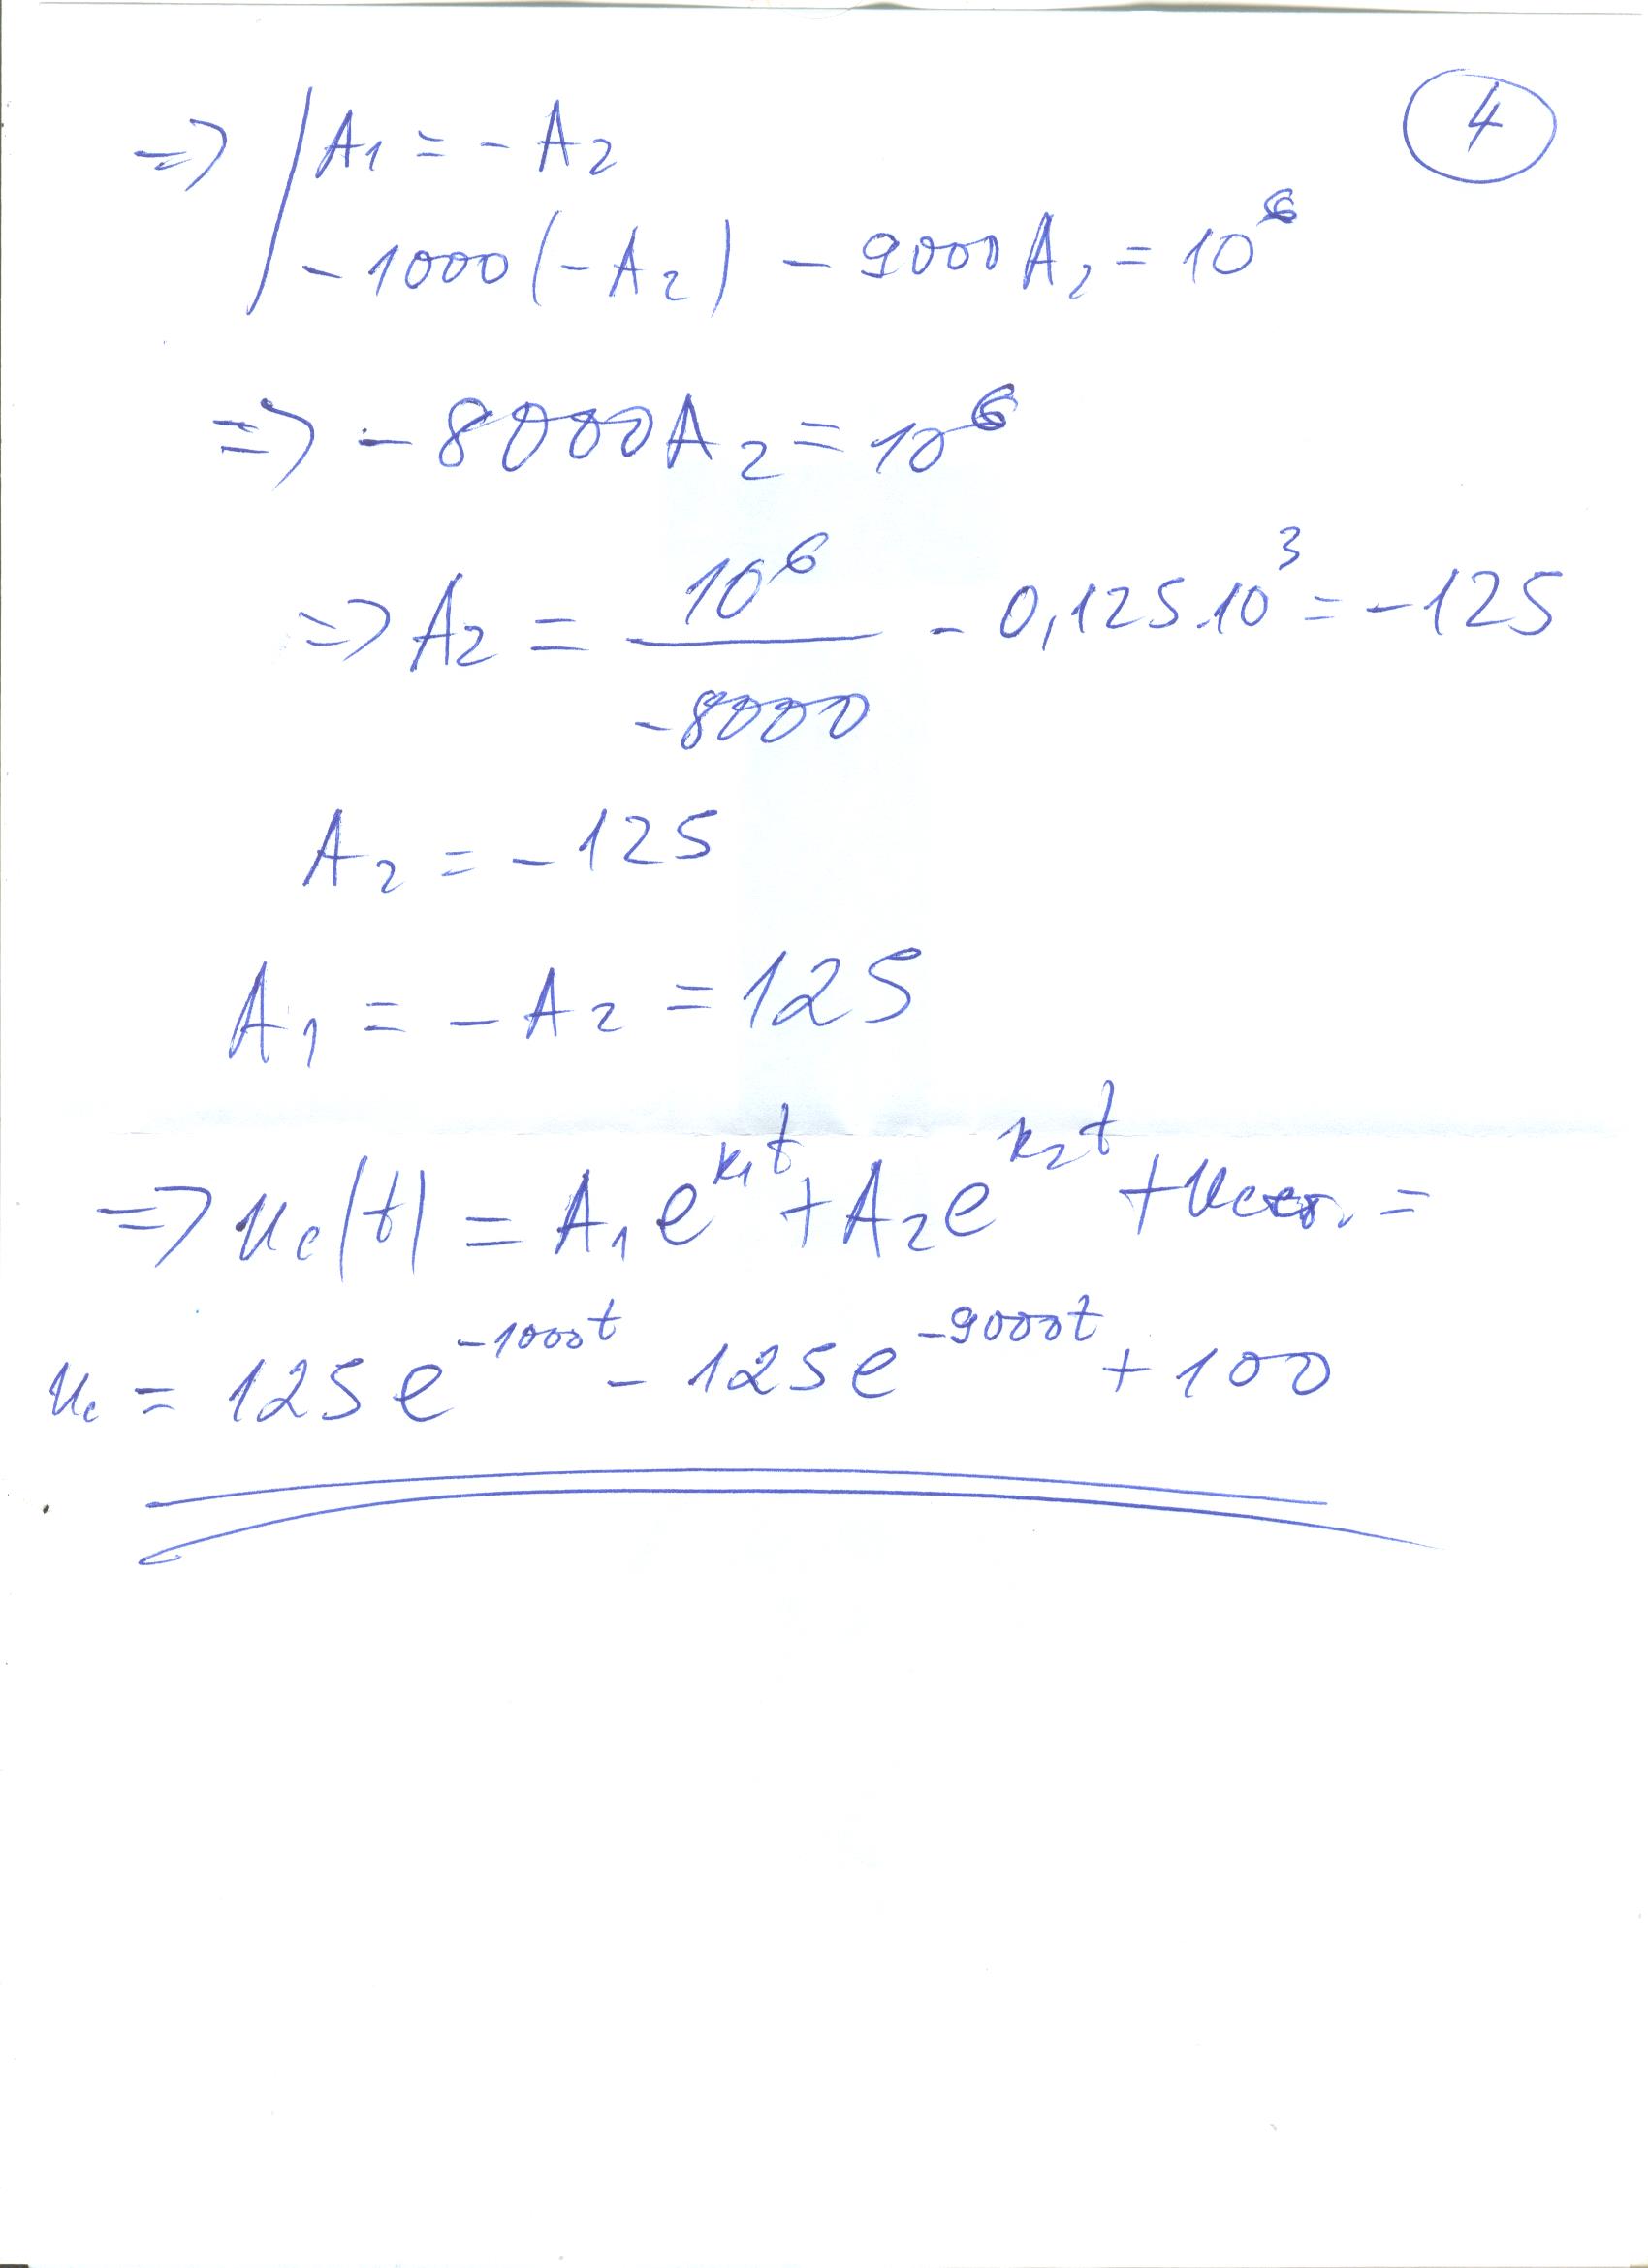 4
=> | A₁ = - A₂
- 1000 (- A₂) - 9000 A₂ = 10⁶
=> - 8000 A₂ = 10⁶
=> A₂ = 10⁶ / -8000 - 0,125.10³ = - 125
A₂ = - 125
A₁ = - A₂ = 125
=> u_c(t) = A₁ e^{k₁t} + A₂ e^{k₂t} + u_{cст.} =
u_c = 125 e^{-1000t} - 125 e^{-9000t} + 100